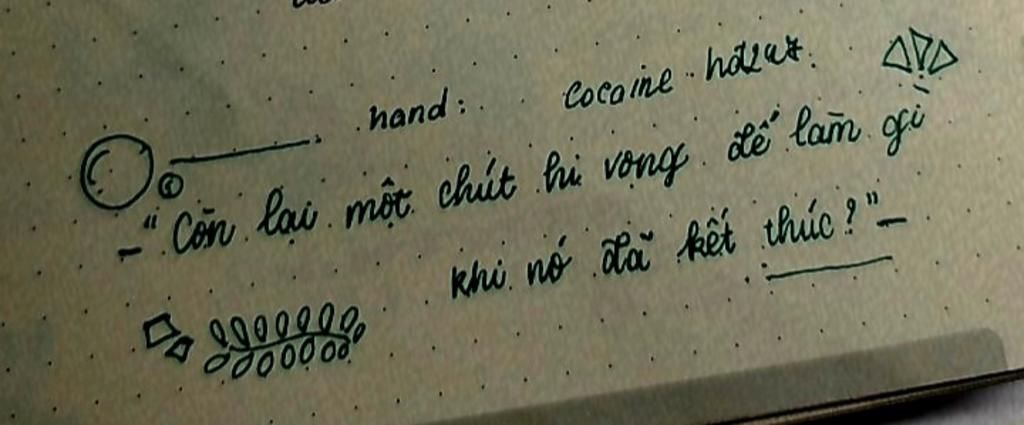 hand: cocaine
-"Còn lại một chút hi vọng để làm gì
khi nó đã kết thúc?"-